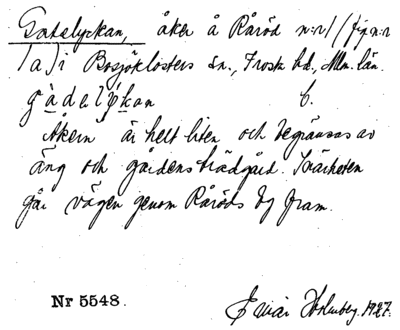 Gatelyckan, åker å Råröd n:r 1 (fig n:r
1a) i Bosjöklosters sn., Frosta hd., Mlm. län.
gàdelýkan f.
Åkern är helt liten och begränsas av
äng och gårdens trädgård. I närheten
går vägen genom Råröds by fram.
Nr 5548. Einar Holmberg. 1927.